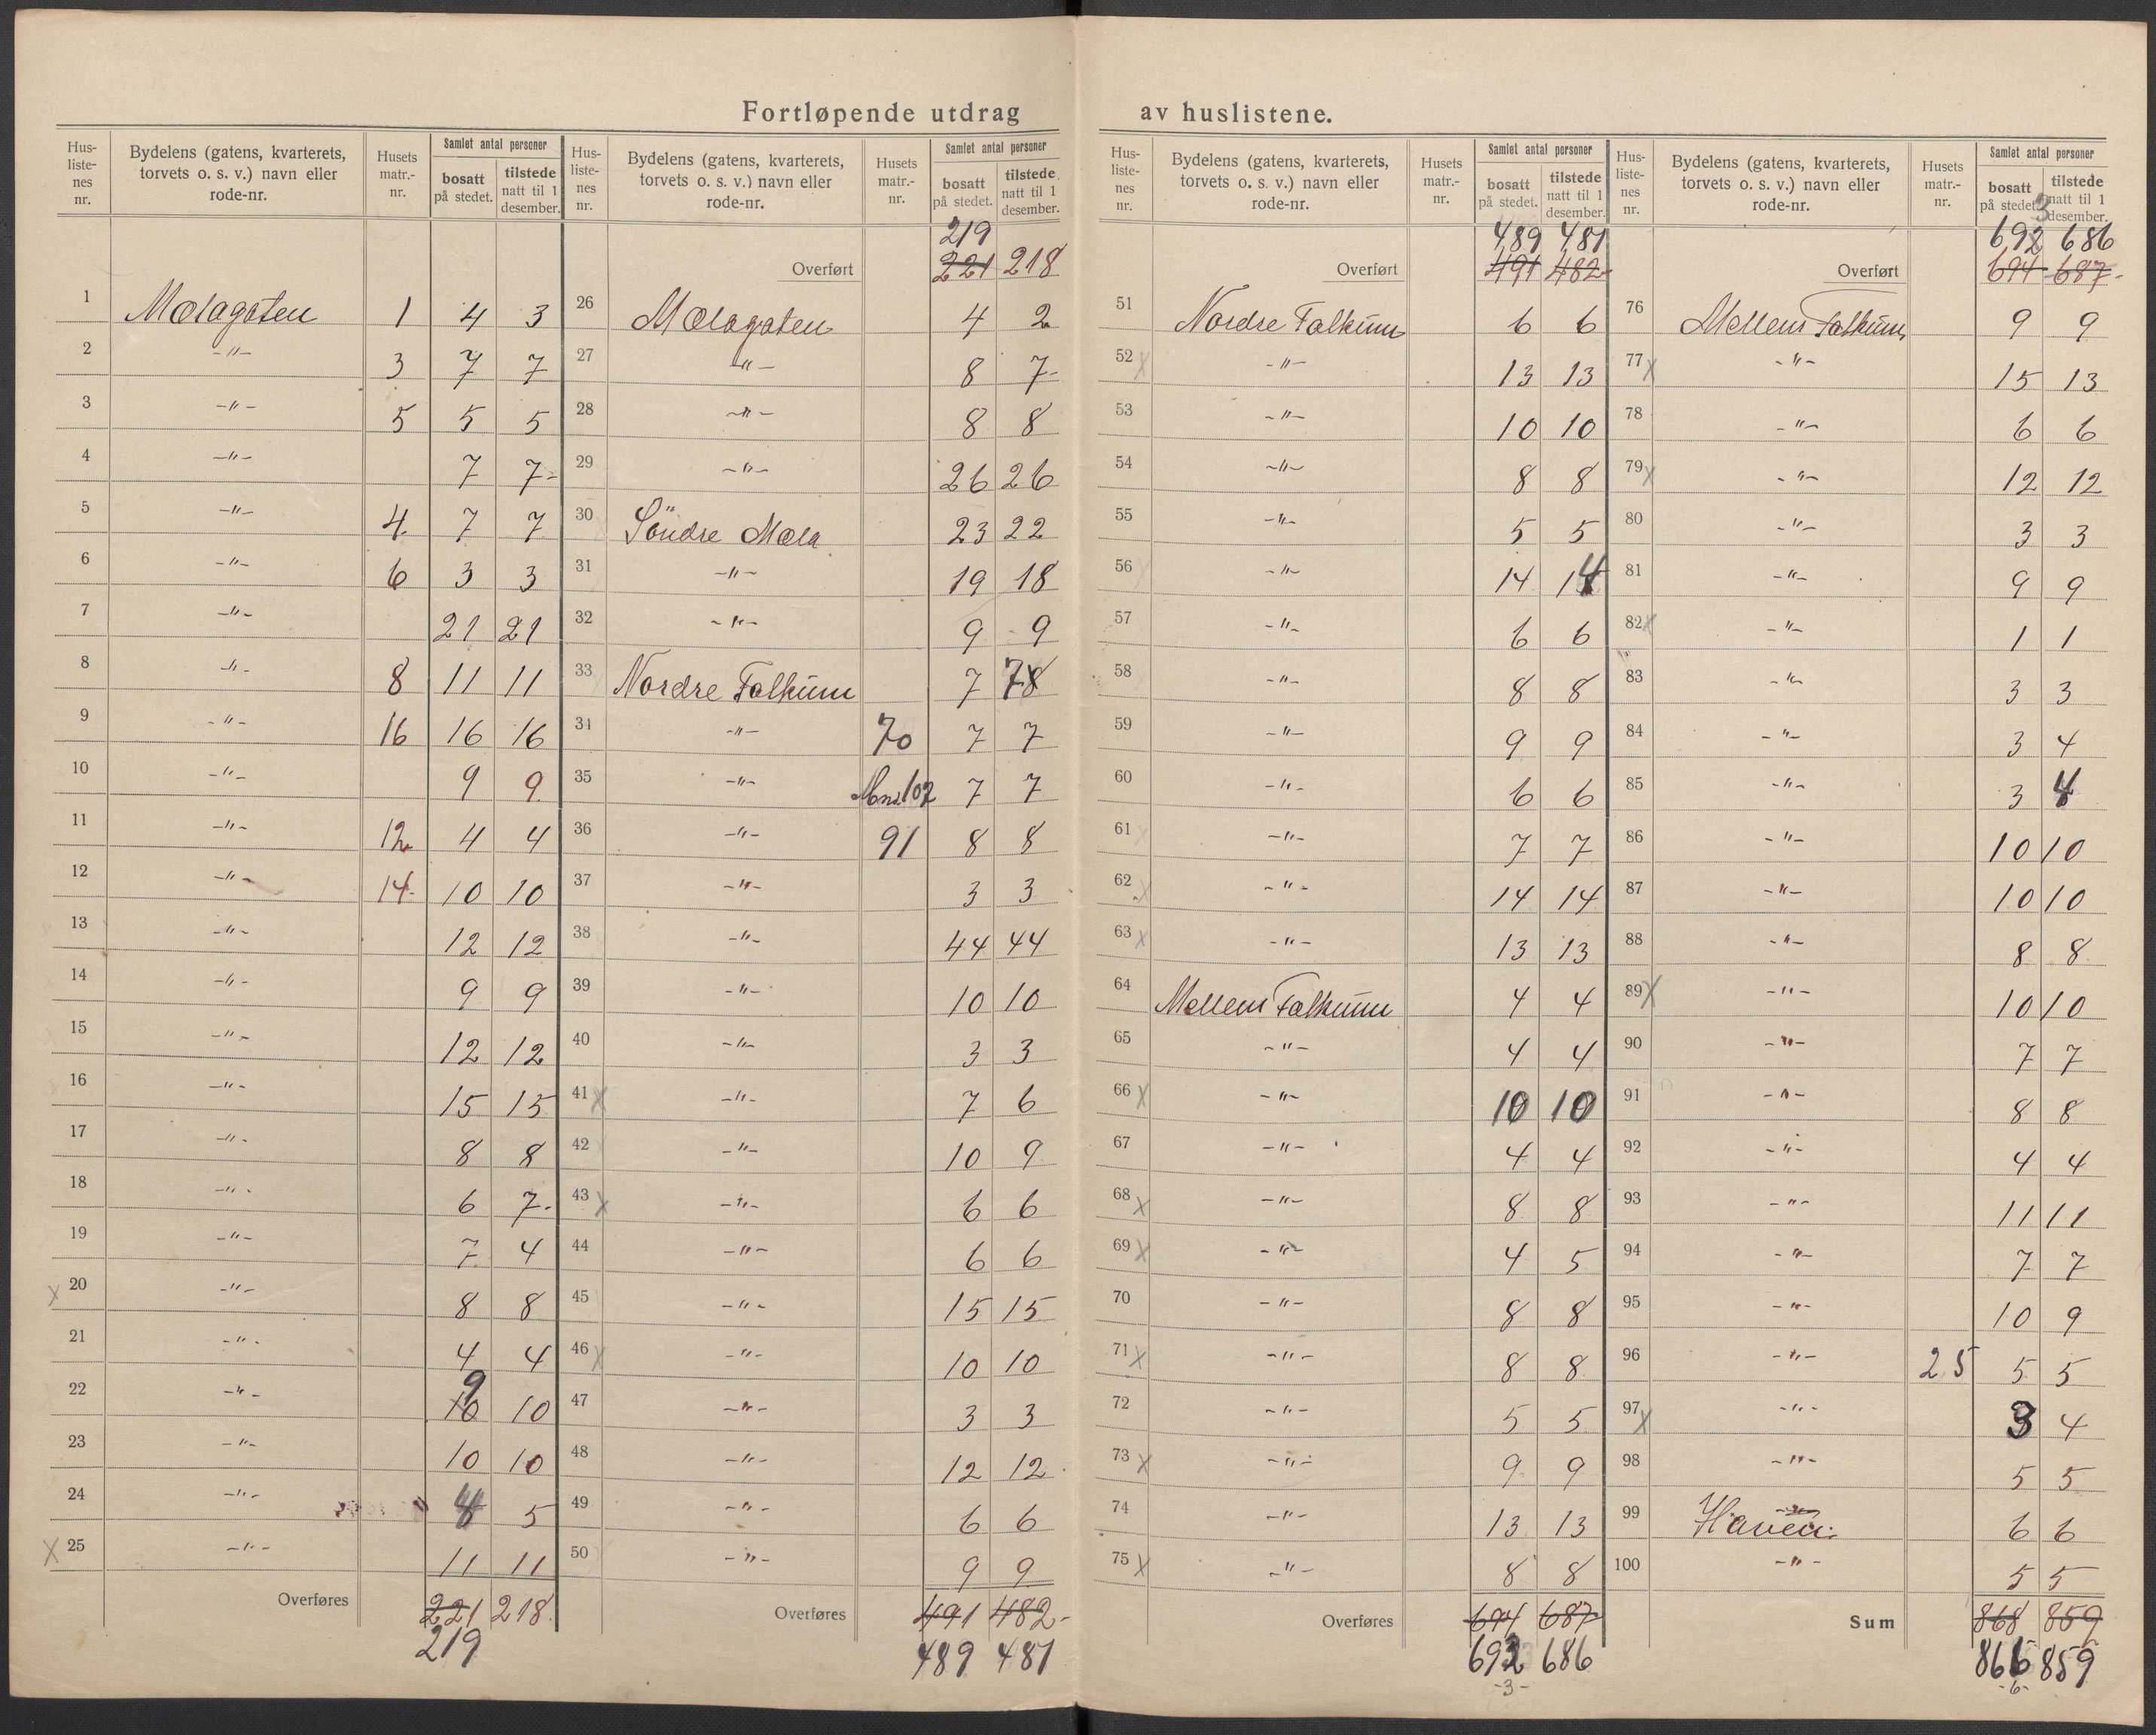 Fortløpende utdrag av huslistene.
Hus-listenes nr. | Bydelens (gatens, kvarterets, torvets o. s. v.) navn eller rode-nr. | Husets matr.-nr. | Samlet antal personer | bosatt på stedet. | tilstede natt til 1 desember.
1 Mælagaten 1 4 3
2 -"- 3 7 7
3 -"- 5 5 5
4 -"- 7 7
5 -"- 4 7 7
6 -"- 6 3 3
7 -"- 21 21
8 -"- 8 11 11
9 -"- 16 16 16
10 -"- 9 9
11 -"- 12 4 4
12 -"- 14 10 10
13 -"- 12 12
14 -"- 9 9
15 -"- 12 12
16 -"- 15 15
17 -"- 8 8
18 -"- 6 7
19 -"- 7 4
x 20 -"- 8 8
21 -"- 4 4
22 -"- 9 10 10
23 -"- 10 10
24 -"- 4 5
x 25 -"- 11 11
Overføres 221 218
219
Hus-listenes nr. | Bydelens (gatens, kvarterets, torvets o. s. v.) navn eller rode-nr. | Husets matr.-nr. | Samlet antal personer | bosatt på stedet. | tilstede natt til 1 desember.
219
Overført 221 218
26 Mælagaten 4 2
27 -"- 8 7
28 -"- 8 8
29 -"- 26 26
30 Söndre Mæla 23 22
31 -"- 19 18
32 -"- 9 9
33 Nordre Falkum 7 7 8
34 -"- 70 7 7
35 -"- 102 7 7
36 -"- 91 8 8
37 -"- 3 3
38 -"- 44 44
39 -"- 10 10
40 -"- 3 3
41 x -"- 7 6
42 -"- 10 9
43 x -"- 6 6
44 -"- 6 6
45 -"- 15 15
46 x -"- 10 10
47 -"- 3 3
48 -"- 12 12
49 -"- 6 6
50 -"- 9 9
Overføres 491 482
489 481
Hus-listenes nr. | Bydelens (gatens, kvarterets, torvets o. s. v.) navn eller rode-nr. | Husets matr.-nr. | Samlet antal personer | bosatt på stedet. | tilstede natt til 1 desember.
489 481
Overført 491 482
51 Nordre Falkum 6 6
52 x -"- 13 13
53 -"- 10 10
54 -"- 8 8
55 -"- 5 5
56 -"- 14 14
57 -"- 6 6
58 -"- 8 8
59 -"- 9 9
60 -"- 6 6
61 -"- 7 7
62 x -"- 14 14
63 x -"- 13 13
64 Mellem Falkum 4 4
65 -"- 4 4
66 x -"- 10 10
67 -"- 4 4
68 x -"- 8 8
69 x -"- 4 5
70 -"- 8 8
71 x -"- 8 8
72 -"- 5 5
73 x -"- 9 9
74 -"- 13 13
75 x -"- 8 8
Overføres 694 687
692 686
-3-
Hus-listenes nr. | Bydelens (gatens, kvarterets, torvets o. s. v.) navn eller rode-nr. | Husets matr.-nr. | Samlet antal personer | bosatt på stedet. | tilstede natt til 1 desember.
3
692 686
Overført 694 687
76 Mellem Falkum 9 9
77 x -"- 15 13
78 -"- 6 6
79 x -"- 12 12
80 -"- 3 3
81 -"- 9 9
82 x -"- 1 1
83 -"- 3 3
84 -"- 3 4
85 -"- 3 4
86 -"- 10 10
87 -"- 10 10
88 -"- 8 8
89 x -"- 10 10
90 -"- 7 7
91 -"- 8 8
92 -"- 4 4
93 -"- 11 11
94 -"- 7 7
95 -"- 10 9
96 -"- 25 5 5
97 x -"- 3 4
98 -"- 5 5
99 Haven 6 6
100 -"- 5 5
Sum 868 859
866 859
-6-